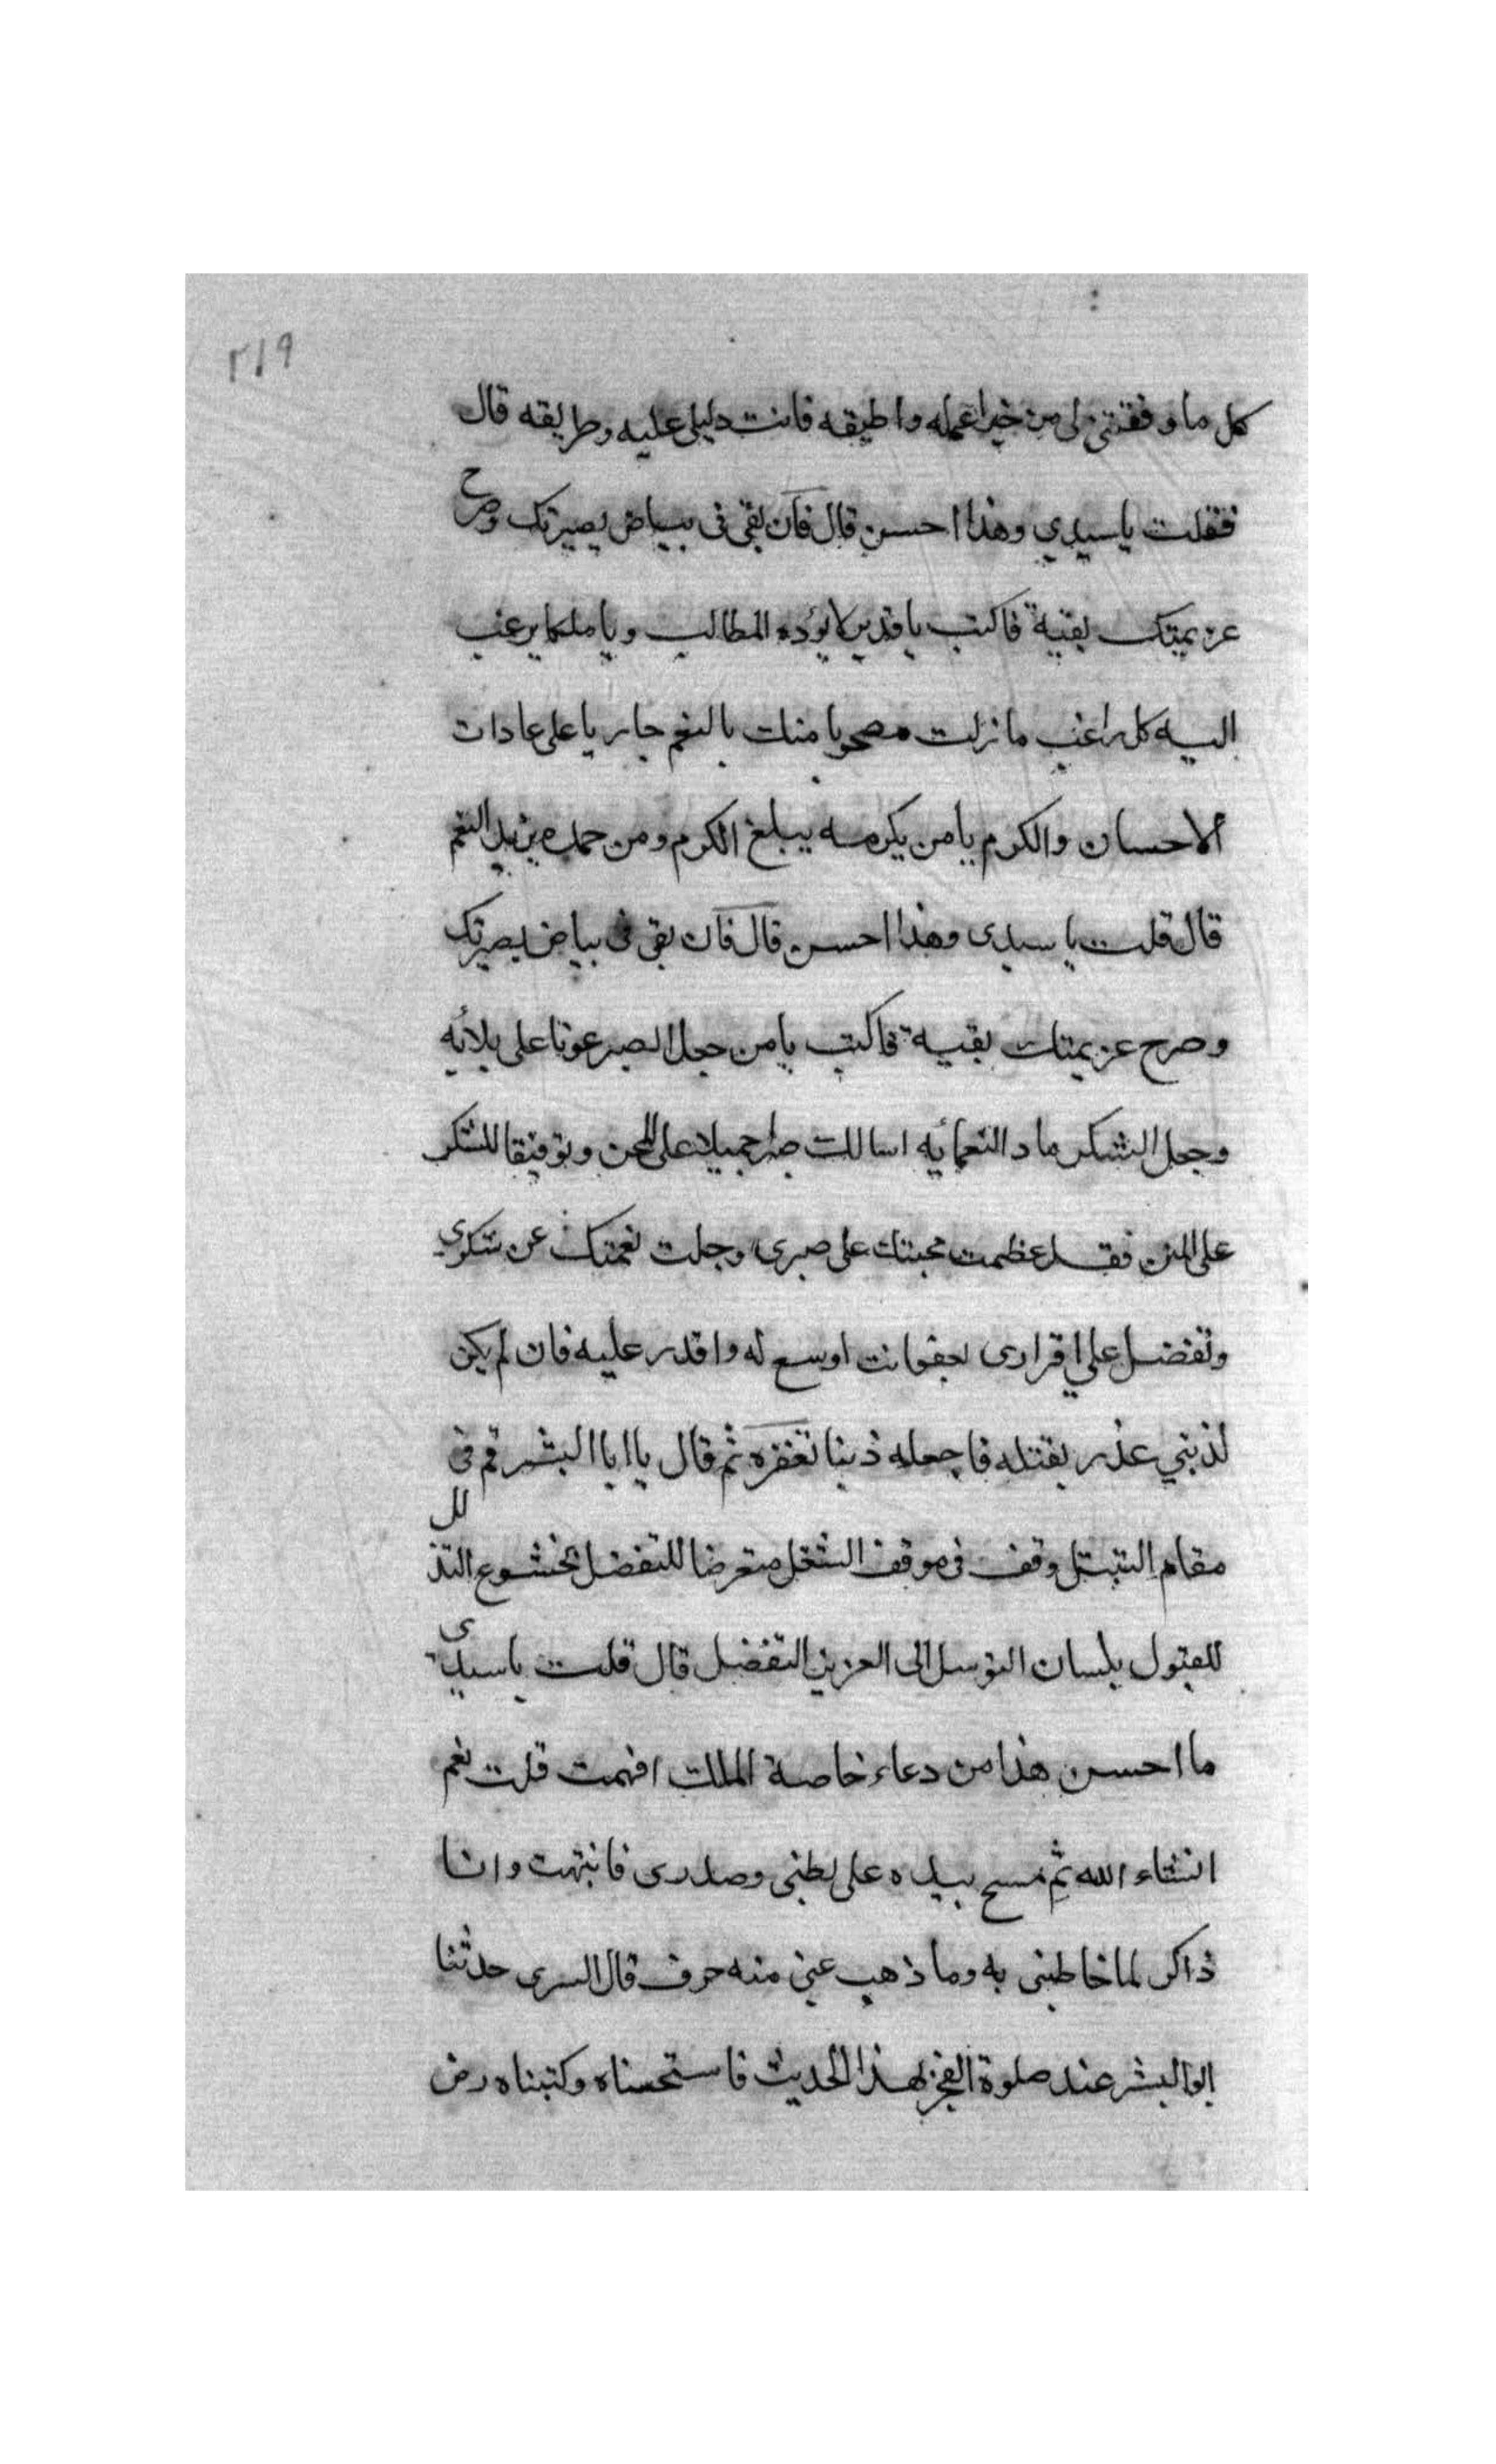 ٢١٩
كل ما وفقتني لى من خير اعمله واطيقه فانت دليلى عليه وطريقه قال
فقلت يا سيدي وهذا احسن قال فان بقى فى بياض بصيرتك وصرح
عزيمتك بقية فاكتب يا قدير لا يؤده المطالب ويا ملكا يرغب
اليه كل راغب ما زلت مصحوبا منك بالنعم جاريا على عادات
الاحسان والكرم يا من بكرمه يبلغ الكرم ومن حمده يزيد النعم
قال قلت يا سيدى وهذا احسن قال فان بقى فى بياض بصيرتك
وصرح عزيمتك بقية فاكتب يا من جعل الصبر عونا على بلائه
وجعل الشكر ماد النعمائه اسالك صبرا جميلا على المحن وتوفيقا للشكر
على المنن فقد عظمت محبتك على صبرى وجلت نعمتك عن شكوى
وتفضل على اقرارى بعفو انت اوسع له واقدر عليه فان لم يكن
لذنبي عذر يقتله فاجعله ذنبا تغفره ثم قال يا ابا البشر قم فى
مقام التبتل وقف فى موقف الشغل متعرضا للتفضل بخشوع التذلل
للقبول بلسان التوسل الى العزيز التفضل قال قلت يا سيدى
ما احسن هذا من دعاء خاصة الملك افهمت قلت نعم
انشاء الله ثم مسح بيده على بطنى وصدرى فانبتهت وانا
ذاكر لما خاطبنى به وما ذهب عنى منه حرف قال السرى حدثنا
ابو البشر عند صلوة الفجر بهذا الحديث فاستحسناه وكتبناه رض